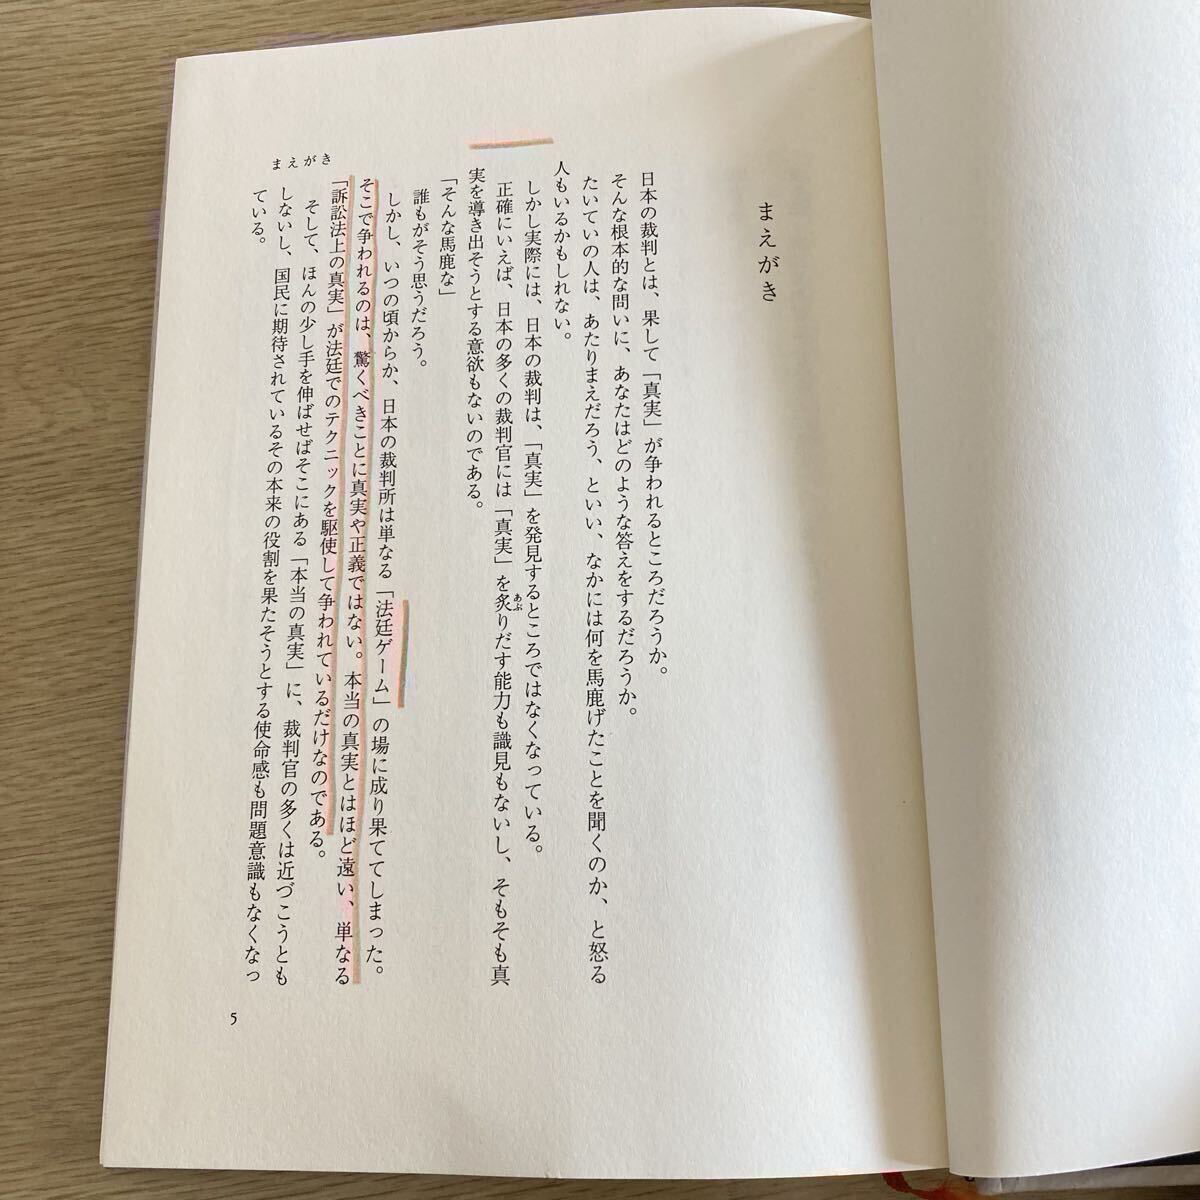 まえがき
日本の裁判とは、果して「真実」が争われるところだろうか。
そんな根本的な問いに、あなたはどのような答えをするだろうか。
たいていの人は、あたりまえだろう、といい、なかには何を馬鹿げたことを聞くのか、と怒る
人もいるかもしれない。
しかし実際には、日本の裁判は、「真実」を発見するところではなくなっている。
正確にいえば、日本の多くの裁判官には「真実」を炙りだす能力も識見もないし、そもそも真
あぶ
実を導き出そうとする意欲もないのである。
「そんな馬鹿な」
誰もがそう思うだろう。
しかし、いつの頃からか、日本の裁判所は単なる「法廷ゲーム」の場に成り果ててしまった。
そこで争われるのは、驚くべきことに真実や正義ではない。本当の真実とはほど遠い、単なる
「訴訟法上の真実」が法廷でのテクニックを駆使して争われているだけなのである。
そして、ほんの少し手を伸ばせばそこにある「本当の真実」に、裁判官の多くは近づこうとも
しないし、国民に期待されているその本来の役割を果たそうとする使命感も問題意識もなくなっ
ている。
まえがき
5